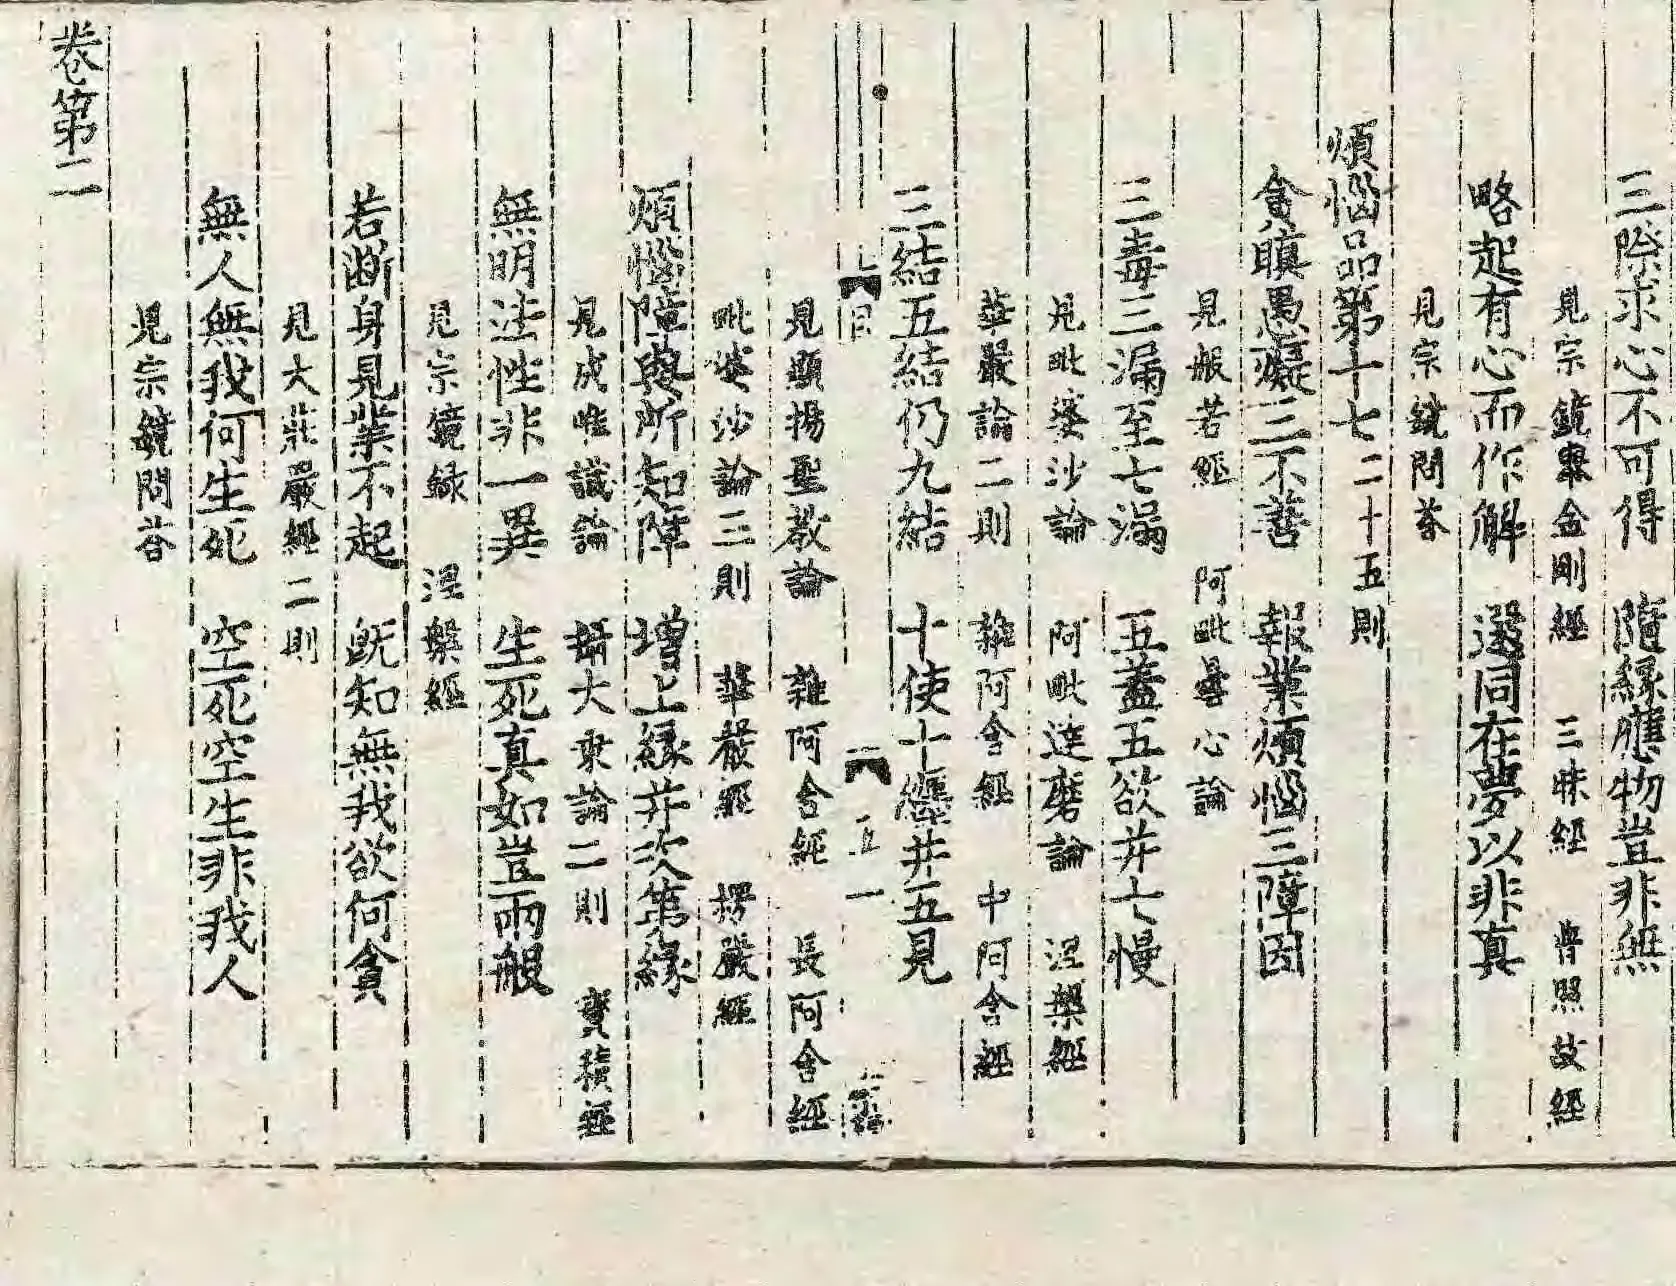 三際求心不可得　隨緣應物豈非無
見宗鏡畧金剛經　三昧經　普照故經
略起有心而作解　還同在夢以非真
見宗鏡問荅
煩惱品第十七二十五則
貪瞋愚癡三不善　報業煩惱三障因
見般若經　阿毗曇心論
三毒三漏至七漏　五蓋五欲并七慢
見毗婆沙論　阿毗達磨論　涅槃經
華嚴論二則　雜阿含經　中阿含經
三結五結仍九結　十使十纏并五見
目　二　五一
見顯揚聖教論　雜阿含經　長阿含經
毗婆沙論三則　華嚴經　楞嚴經
煩惱障與所知障　增上緣并次第緣
見成唯識論　攝大乘論二則　寶積經
無明法性非一異　生死真如豈兩般
見宗鏡録　涅槃經
若斷身見業不起　旣知無我欲何貪
見大莊嚴經二則
無人無我何生死　空死空生非我人
見宗鏡問荅
卷第二